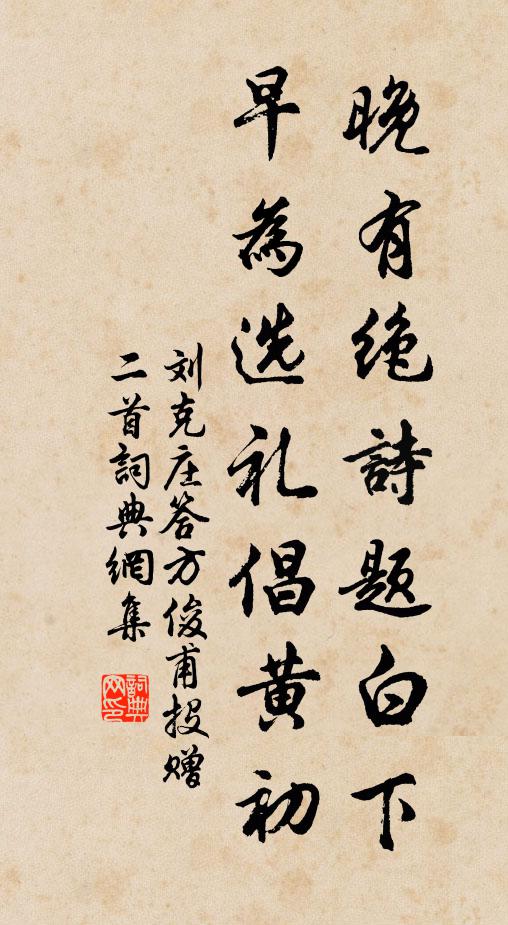 晚有绝詩题白下
早為选礼倡黄初
刘克庄答方俊甫投赠
二首詞典網集
詞典网印